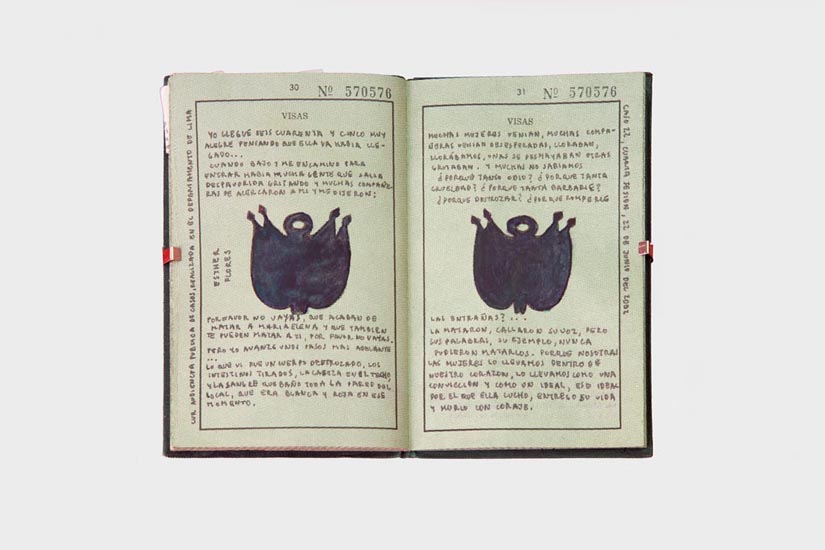 30 Nº 570576
VISAS
YO LLEGUE SEIS CUARENTA Y CINCO MUY
ALEGRE PENSANDO QUE ELLA YA HABIA LLE-
GADO...
CUANDO BAJO Y ME ENCAMINO PARA
ENTRAR HABIA MUCHA GENTE QUE SALIA
DESPAVORIDA GRITANDO Y MUCHAS COMPAÑE-
RAS SE ACERCARON A MI Y ME DIJERON:
ESTHER
FLORES
POR FAVOR NO VAYAS, QUE ACABAN DE
MATAR A MARIA ELENA Y QUE TAMBIEN
TE PUEDEN MATAR A TI, POR FAVOR NO VAYAS.
PERO YO AVANZE UNOS PASOS MAS ADELANTE
...
LO QUE VI FUE UN CUERPO DESTROZADO, LOS
INTESTINOS TIRADOS, LA CABEZA EN EL TECHO,
Y LA SANGRE QUE BAÑO TODA LA PARED DEL
LOCAL, QUE ERA BLANCA Y ROJA EN ESE
MOMENTO.
CVR AUDIENCIA PUBLICA DE CASOS, REALIZADA EN EL DEPARTAMENTO DE LIMA
31 Nº 570576
VISAS
MUCHAS MUJERES VENIAN, MUCHAS COMPA-
ÑERAS VENIAN DESESPERADAS, LLORABAN,
LLORÁBAMOS, UNAS SE DESMAYABAN OTRAS
GRITABAN. Y MUCHAS NO SABIAMOS
¿PORQUE TANTO ODIO? ¿PORQUE TANTA
CRUELDAD? ¿PORQUE TANTA BARBARIE?
¿PORQUE DESTROZAR? ¿PORQUE ROMPERLE
LAS ENTRAÑAS?...
LA MATARON, CALLARON SU VOZ, PERO
SUS PALABRAS, SU EJEMPLO, NUNCA
PUDIERON MATARLOS. PORQUE NOSOTRAS
LAS MUJERES LO LLEVAMOS DENTRO DE
NUESTRO CORAZON, LO LLEVAMOS COMO UNA
CONVICCIÓN Y COMO UN IDEAL, ESE IDEAL
POR EL QUE ELLA LUCHO, ENTREGO SU VIDA
Y MURIO CON CORAJE.
CASO 22, CUARTA SESION, 22 DE JUNIO DEL 2002